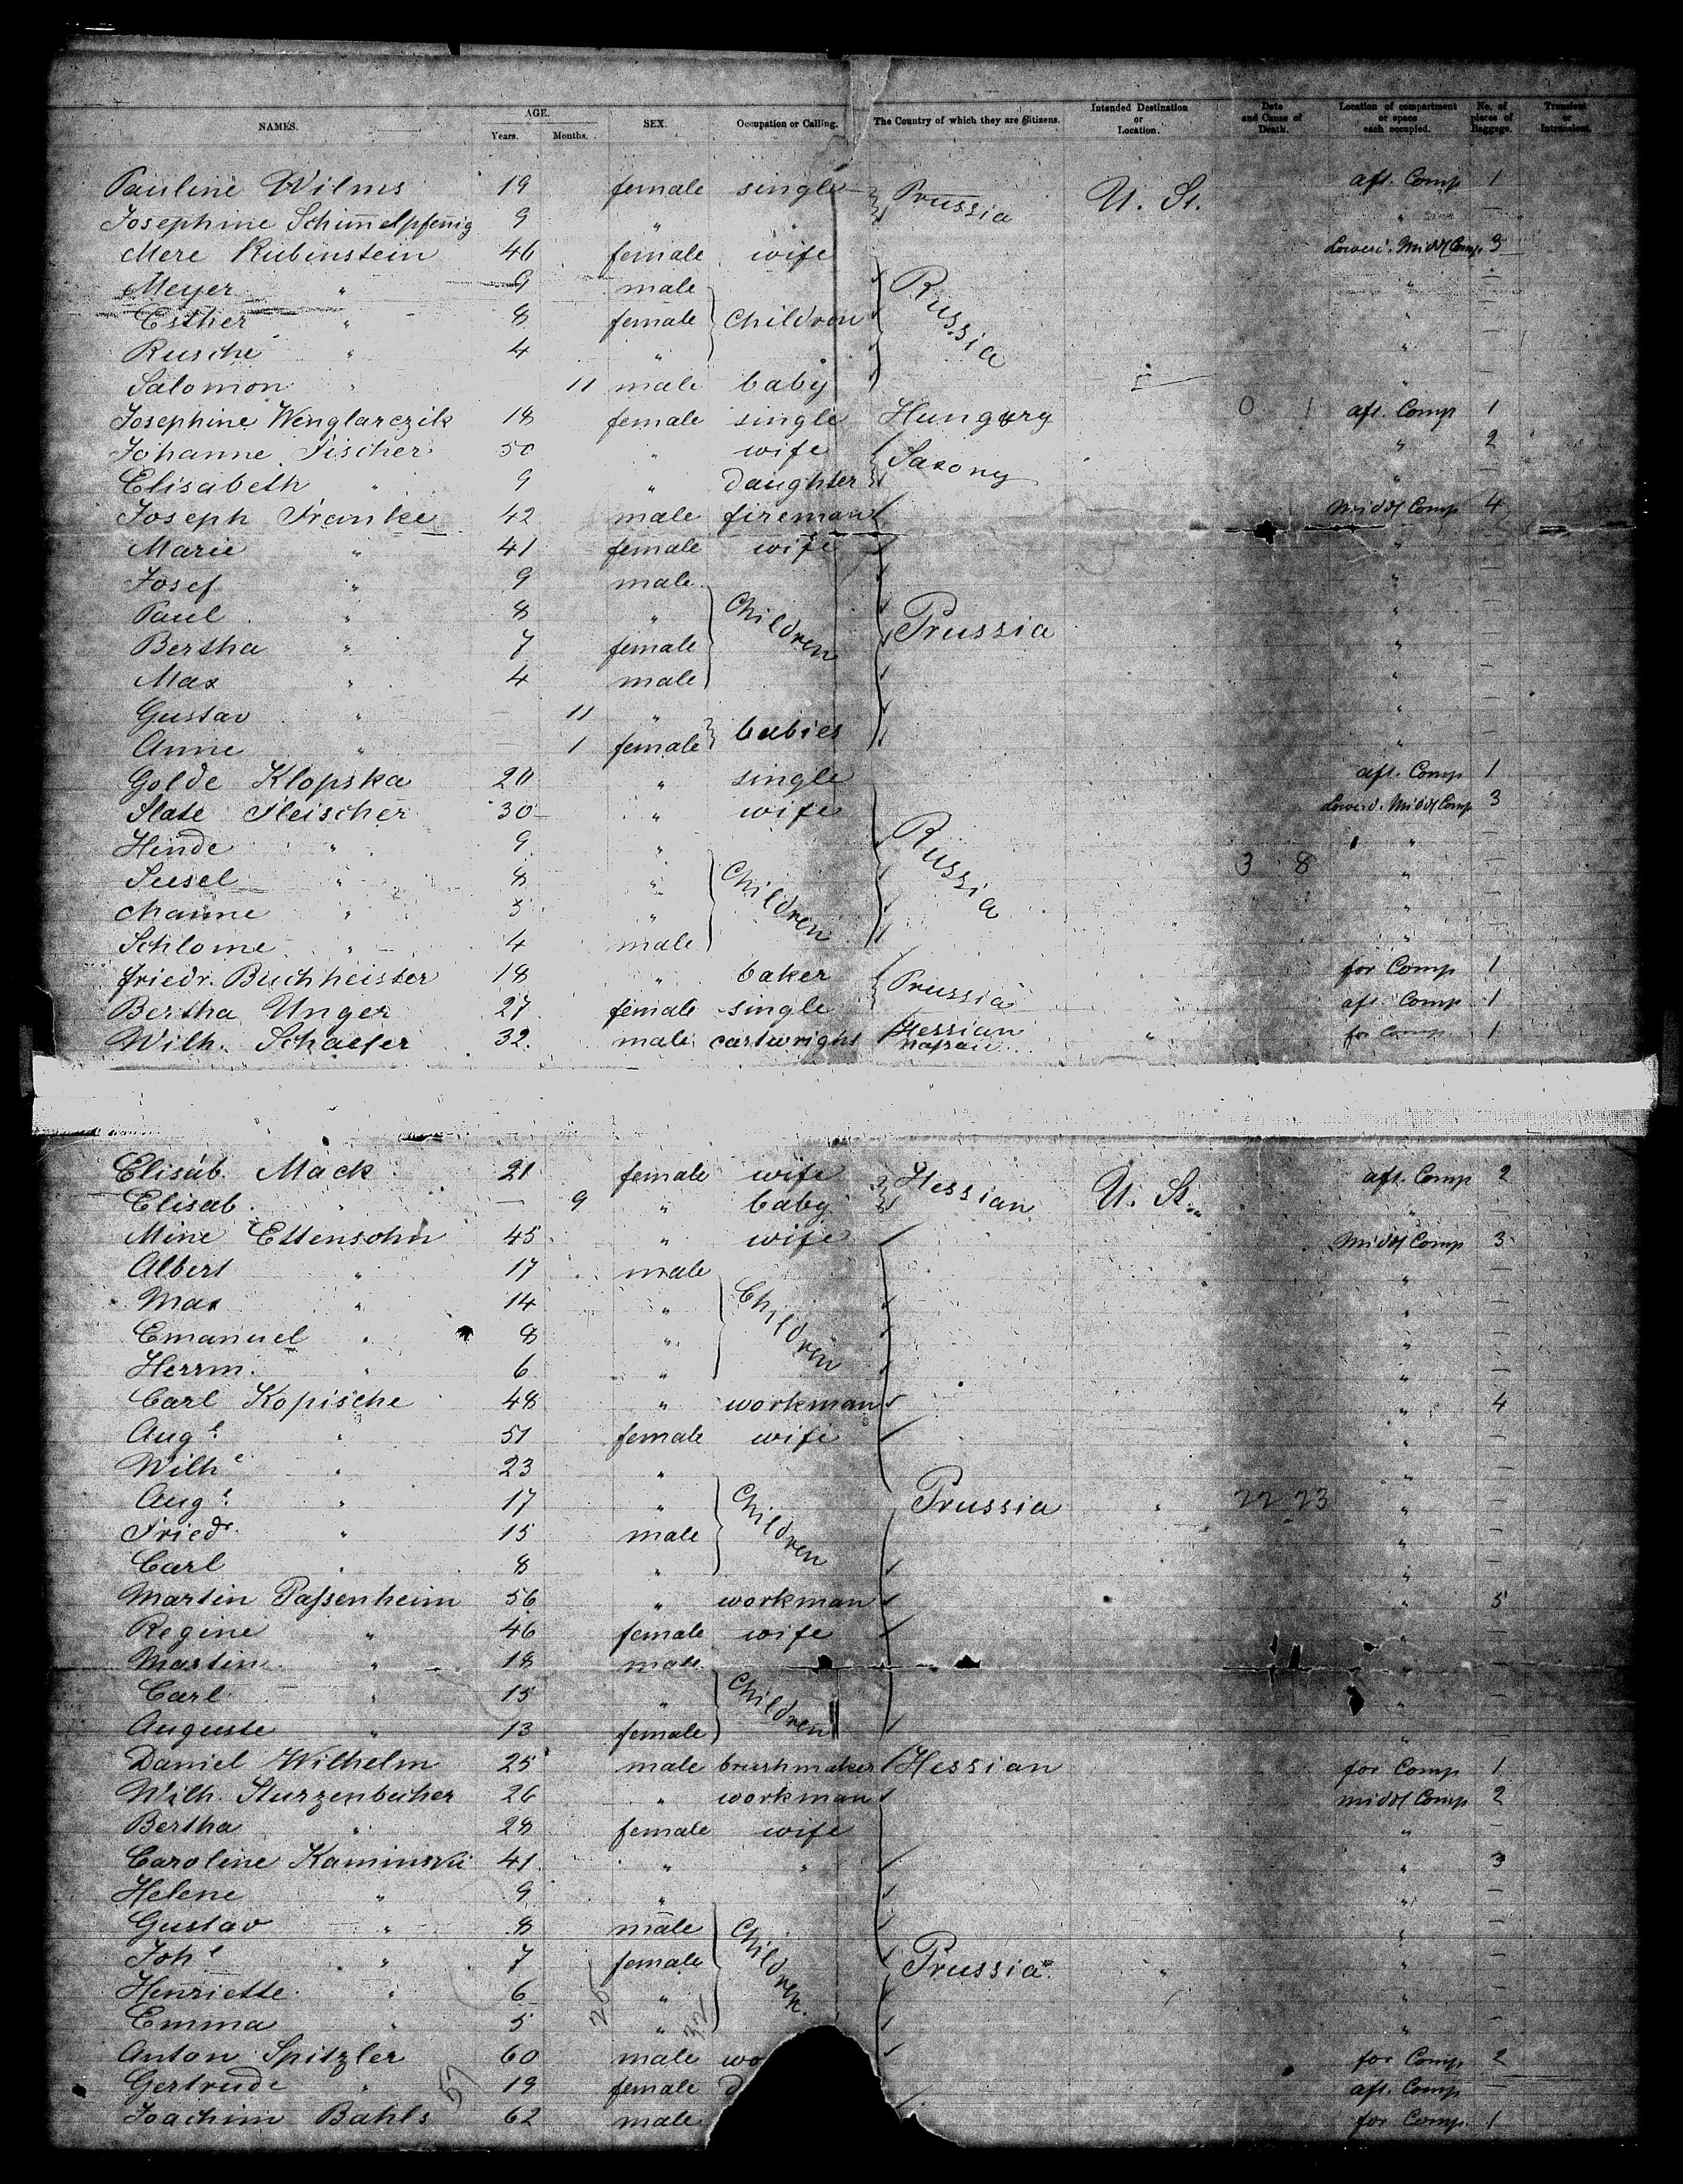 NAMES. AGE. Years. Months. SEX. Occupation or Calling. The Country of which they are Citizens. Intended Destination or Location. Date and Cause of Death. Location of compartment or space each occupied. No. of pieces of Baggage. Transient or Intransient.
Pauline Wilms 19 female single Prussia U. St. aft. Comp 1
Josephine Schim̄elpfen̄ig 9 " " " —
Mere Rubinstein 46 female wife Middl Comp. 3
Meyer " 9 male " —
Esther " 8 female Children Russia " —
Rusche " 4 " " —
Salomon " 11 male baby "
Josephine Wenglarczik 18 female single Hungary 0 1 aft. Comp 1
Johanne Fischer 50 " wife Saxony " 2
Elisabeth " 9 " daughter " —
Joseph Franke 42 male fireman Middl Comp 4
Marie " 41 female wife " —
Josef " 9 male " —
Paul " 8 " Children Prussia " —
Bertha " 7 female " —
Max " 4 male " —
Gustav " — 11 " babies " —
Anne " — 1 female " —
Golde Klopska 20 " single aft. Comp 1
Slate Fleischer 30 " wife Middl Comp 3
Hinde " 9 " Russia " —
Susel " 8 " Children 3 8 " —
Manne " 5 " " —
Schlome " 4 male " —
Friedr. Buchheister 18 " baker Prussia for Comp 1
Bertha Unger 27 female single aft Comp 1
Wilh. Schaefer 32 male cartwright Hessian Naſsau " for Comp 1
Elisab. Mack 21 female wife Hessian U. St. aft. Comp 2
Elisab. " — 9 " baby " —
Mine Ettensohn 45 " wife Middl Comp 3
Albert " 17 male " —
Max " 14 " Children " —
Emanuel " 8 " " —
Herrm. " 6 " " —
Carl Kopische 48 " workman " 4
Aug.e " 51 female wife " —
Wilh.e " 23 " " —
Aug.e " 17 " Children Prussia " 22 23 " —
Friedr. " 15 male " —
Carl " 8 " " —
Martin Paſsenheim 56 " workman " 5
Regine " 46 female wife " —
Martin " 18 male " —
Carl " 15 " Children " —
Auguste " 13 female " —
Daniel Wilhelm 25 male brushmaker Hessian for Comp 1
Wilh. Sturzenbecher 26 " workman middl Comp 2
Bertha " 28 female wife "
Caroline Kaminski 41 " " " 3
Helene " 9 " " —
Gustav " 8 male Children " —
Joh.e " 7 female Prussia " " —
Henriette " 6 " " —
Emma " 5 " " —
Anton Spitzler 60 male wo for Comp. 2
Gertrude " 19 female d aft. Comp —
Joachim Bahls 62 male for Comp. 1
57 25 32